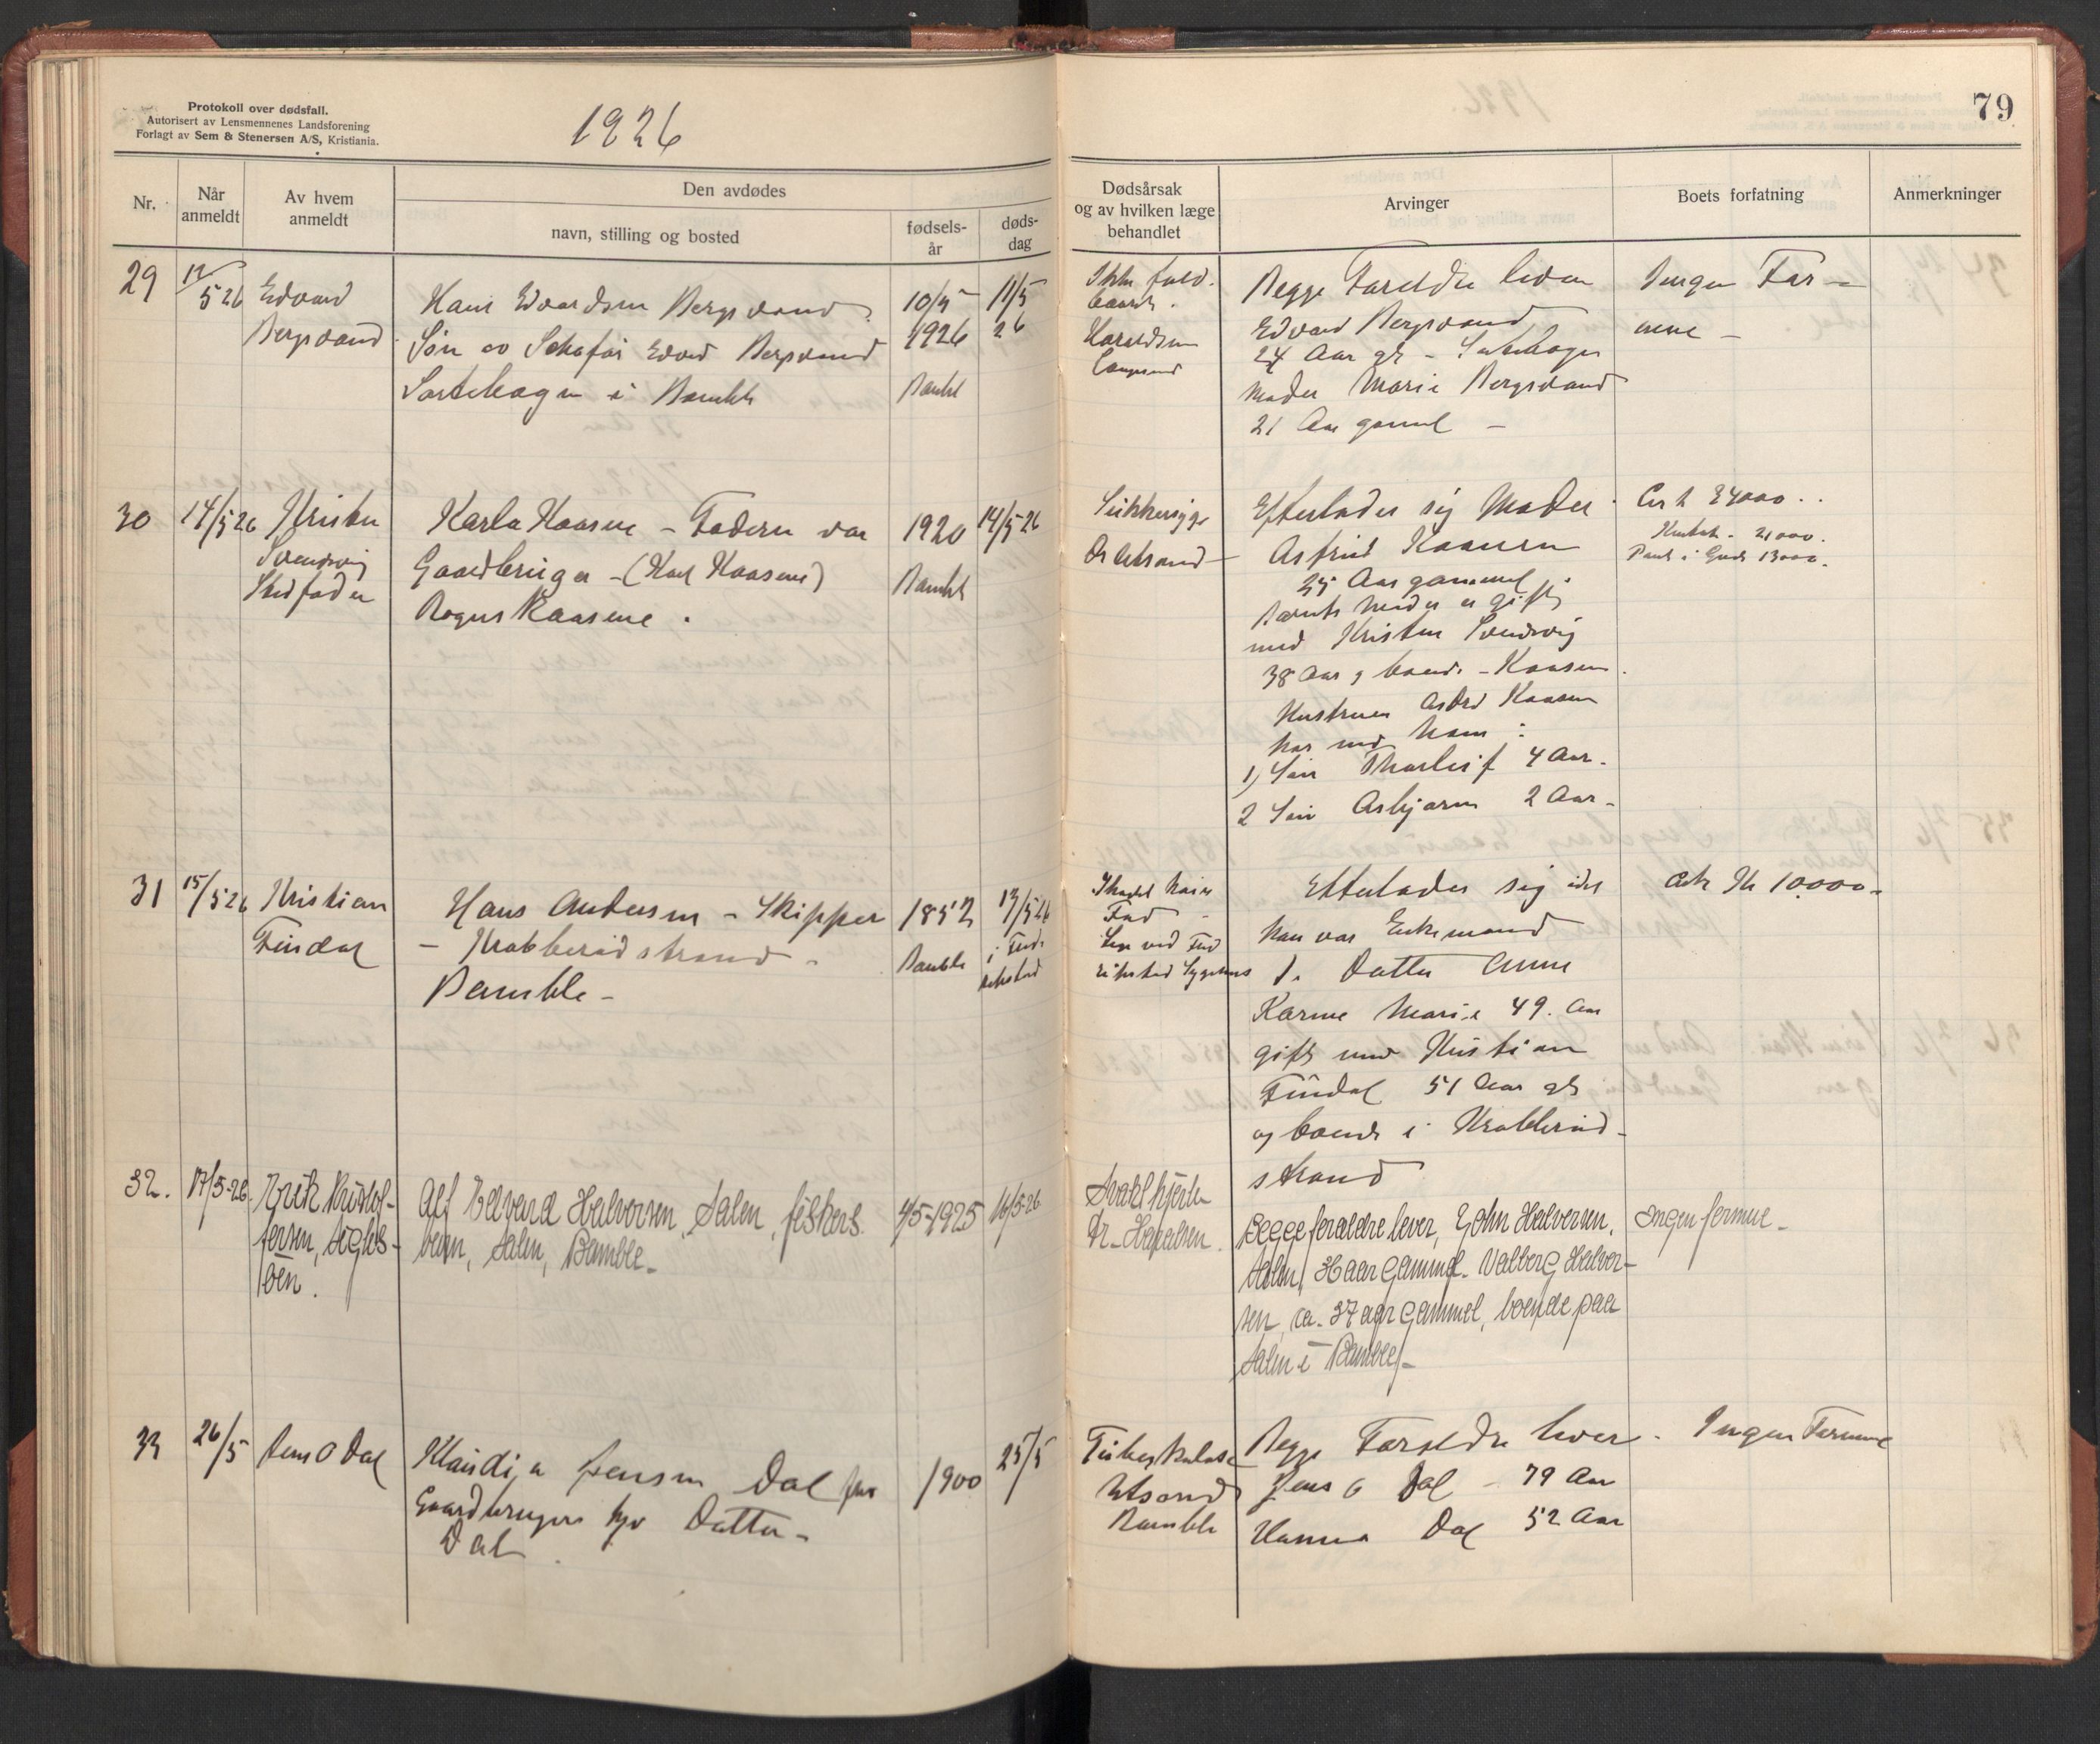 Protokoll over dødsfall.
Autorisert av Lensmennenes Landsforening
Forlagt av Sem & Stenersen A/S, Kristiania.
1926
Nr.
Når anmeldt
Av hvem anmeldt
Den avdødes
navn, stilling og bosted
fødsels-
år
døds-
dag
29
12/5 26
Edvard
Bergsvand
Hans Edvardsen Bergsvand
Søn av Edvard Bergsvand
i Bamble
10/5
1926
Bamble
11/5
26
30
14/5 26
Kristen
Svendsvig
Stedfader
Karla Kaasene - Faderen var
Gaardbruger - (Karl Kaasene)
Kaasene.
1920
Bamble
14/5-26
31
15/5 26
Kristian
Findal
Hans Andersen - Skipper
- Krabberødstrand -
Bamble -
1852
Bamble
13/5 26
i Fred-
rikstad
32.
17/5-26.
Erik Kristof-
fersen,
Alf Edvard Halvorsen, Salen, fiskers
barn, Salen, Bamble.-
4/5-1925
16/5-26
33
26/5
Jens O Dal
Klaudia Jensen Dal
Gaardbrugers Datter -
Dal
1900
25/5
79
Dødsårsak
og av hvilken læge
behandlet
Arvinger
Boets forfatning
Anmerkninger
Ikke fuld-
baaret.
Haraldsen
Langesund
Begge Foreldre lever
Edvard Bergsvand
24 Aar gl -
Moder Marie Bergsvand
21 Aar gammel -
Ingen For-
mue -
Sukkersyge
Efterlader sig Moder
Astrid Kaasene
25 Aar gammel.
Barnets Moder er gift
med Kristen Svendsvig
38 Aar g boende - Kaasen.
Hustruen Kaasen
har med ham:
1) Søn Thorleif 4 Aar.
2 Søn Asbjørn 2 Aar -
Ca k 34000..
21000.
Pant i Gaard 13000.
Efterlader sig idet
han var Enkemand
1. Datter Anne
Karine Marie 49. Aar
gift med Kristian
Findal 51 Aar gl
og boende i Krabberød-
strand
Ca Kr 10000-
Svakt hjerte
Dr.
Begge forældre lever, John Halvorsen,
Salen, 36 aar gammel. Valborg Halvor-
sen, ca. 37 aar gammel, boende paa
Salen i Bamble.-
Ingen formue -
Tuberkulose
Bamble
Begge Foreldre lever.
Jens O Dal - 79 Aar
Hanna Dal 52 Aar
Ingen Formue